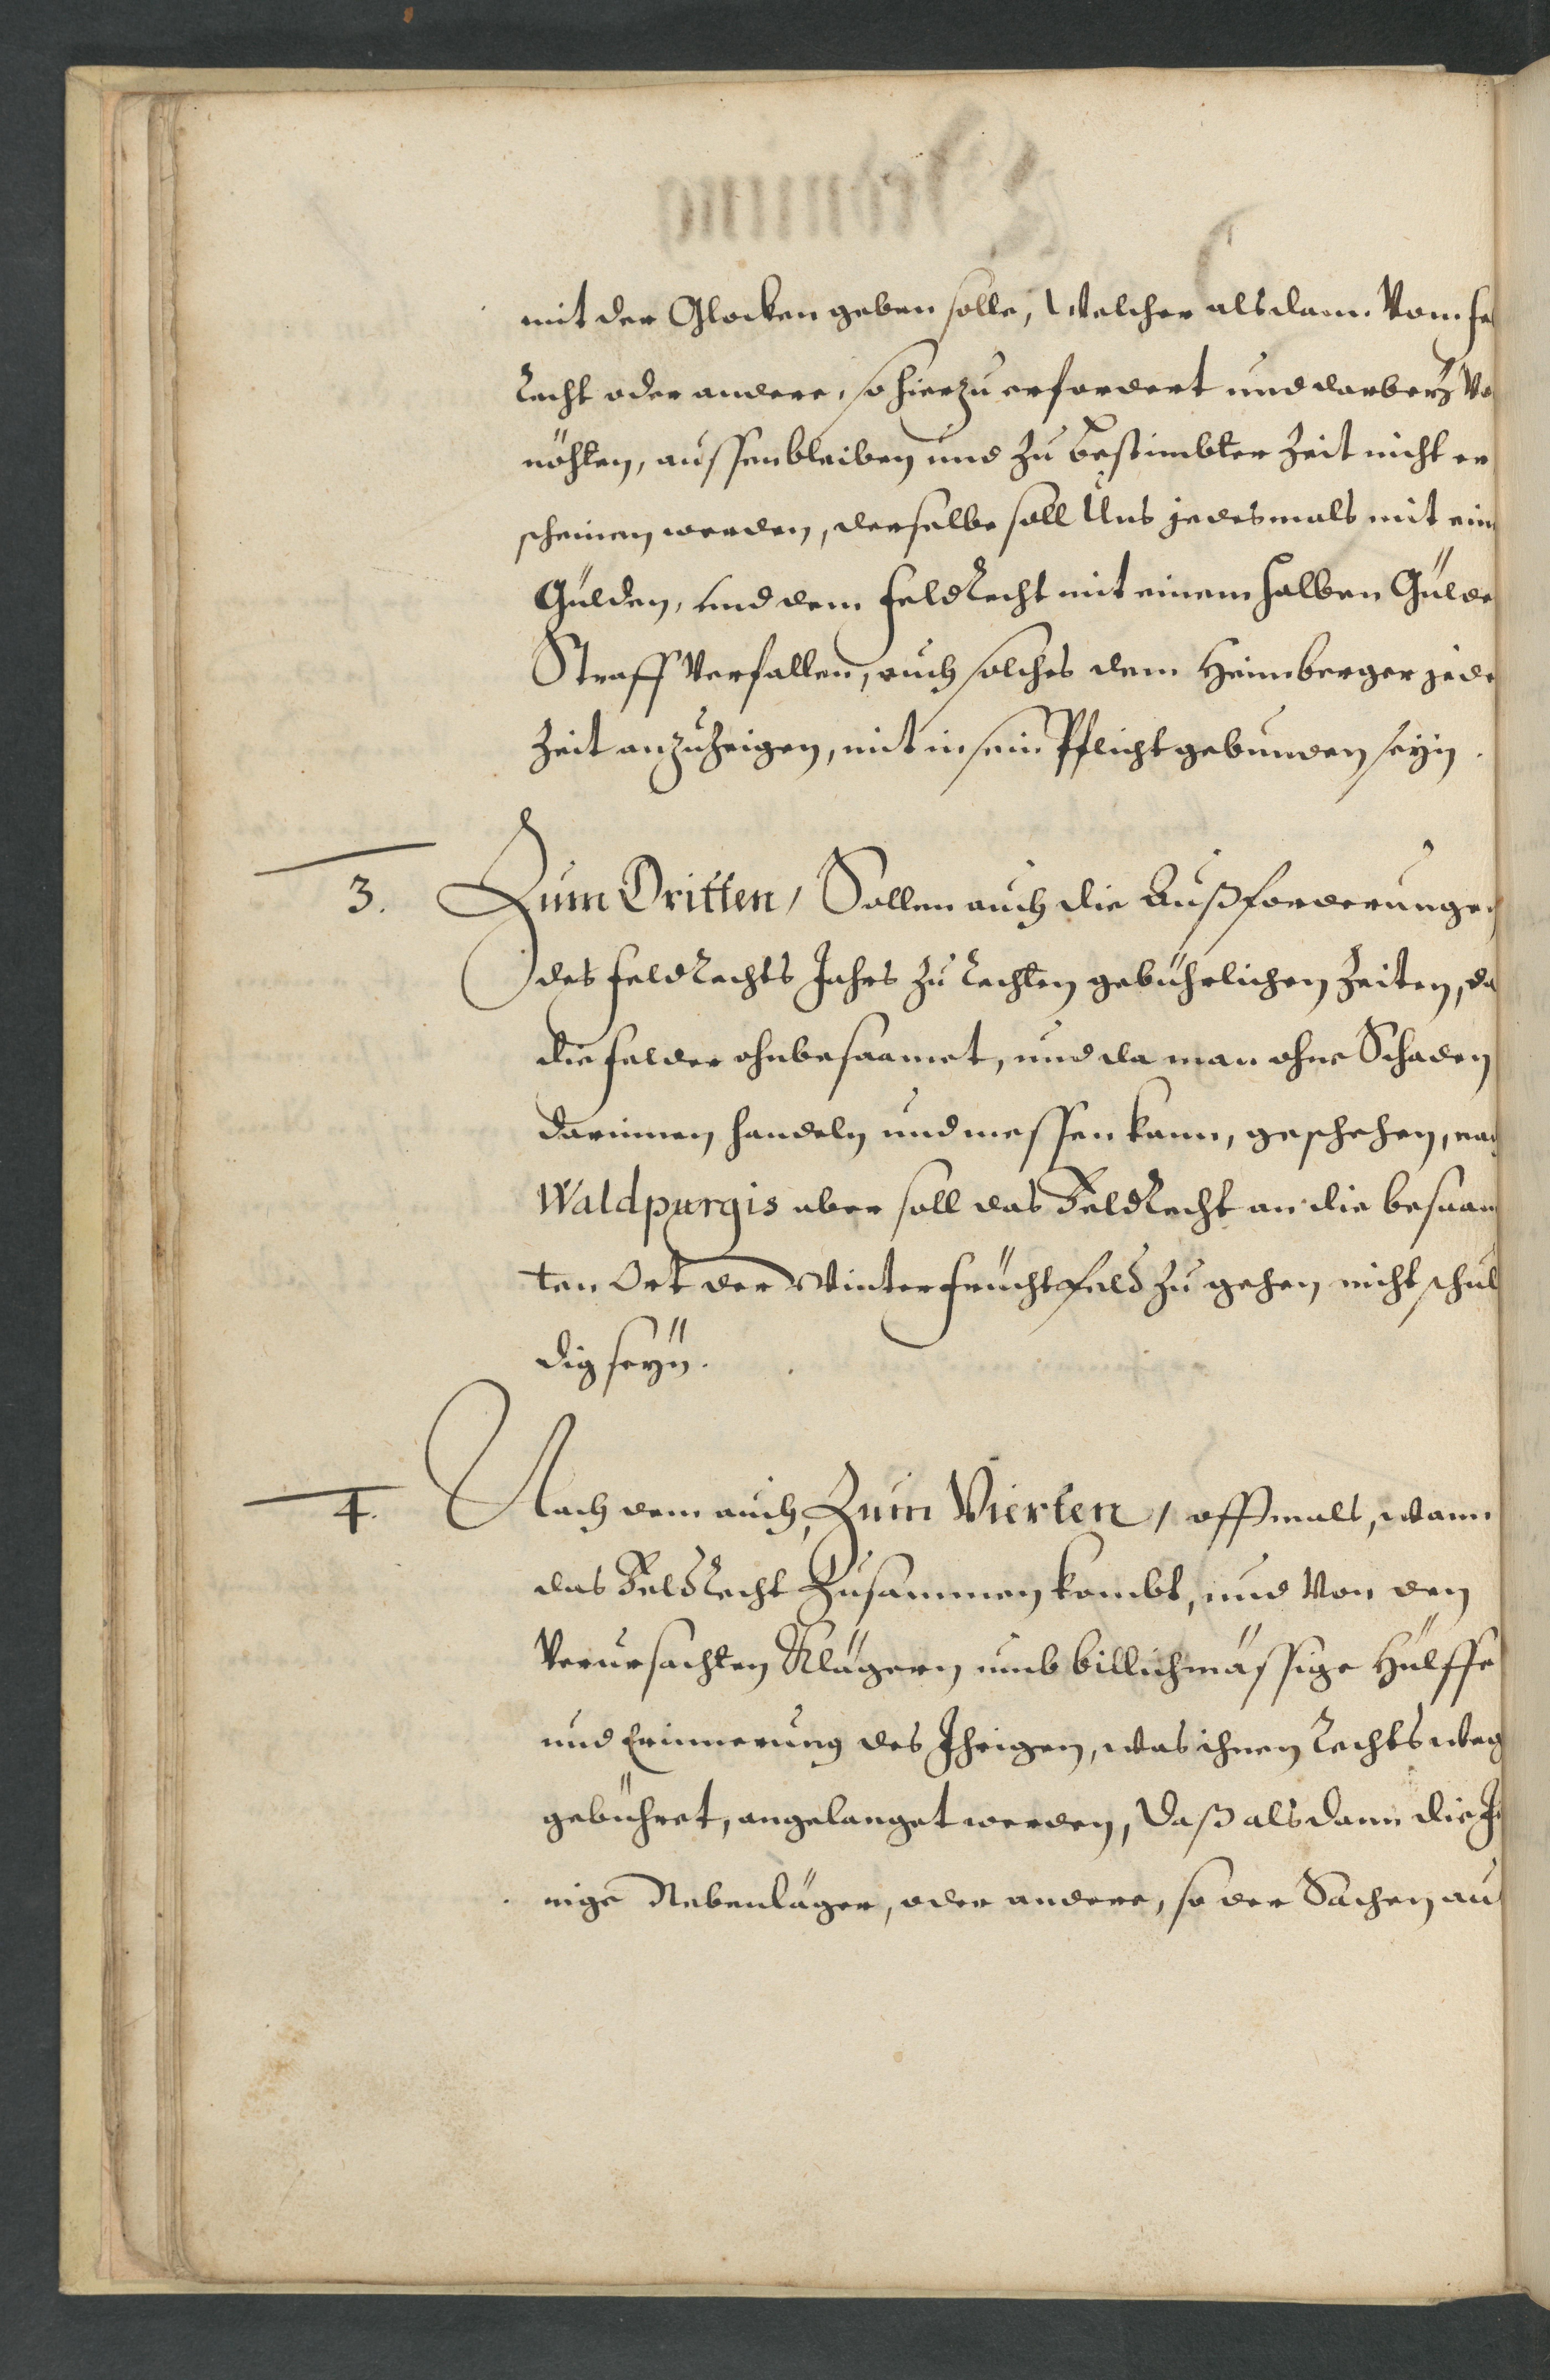 mit der Glocken geben solle, Welcher alsdann Vom fe
Recht oder andere, so hierzu erfordert und darbeÿ Vo
nöhten, aussenbleiben und zu bestimbter Zeit nicht er
scheinen werden, derselbe soll Uns jedesmals mit ein
Gülden, und dem feldRecht mit einem halben Gülde
Straff Verfallen, auch solches dem Heimberger jede
Zeit anzuzeigen, mit in sein Pflicht gebunden seÿn.
3. Zum Dritten, Sollen auch die Außforderungen
des feldRechts Jahrs zu Rechten gebührlichen Zeiten, da
die felder ohnbesaamet, und da man ohne Schaden
darinnen handeln und messen kann, geschehen, nach
Waldpurgis aber soll das FeldRecht an die besaam
ten Ort der Winterfruchtfeld zu gehen nicht schul
dig seÿn.
4. Nach dem auch, Zum Vierten, offtmals, wann
das FeldRecht Zusammen kombt, und Von den
Verursachten Klägern umb billichmässige Hülffe
und Erinnerung des Ihrigen, was ihnen Rechtsweg
gebühret, angelanget werden, Daß alsdann die Je
nige Nebenläger, oder andere, so der Sachen au